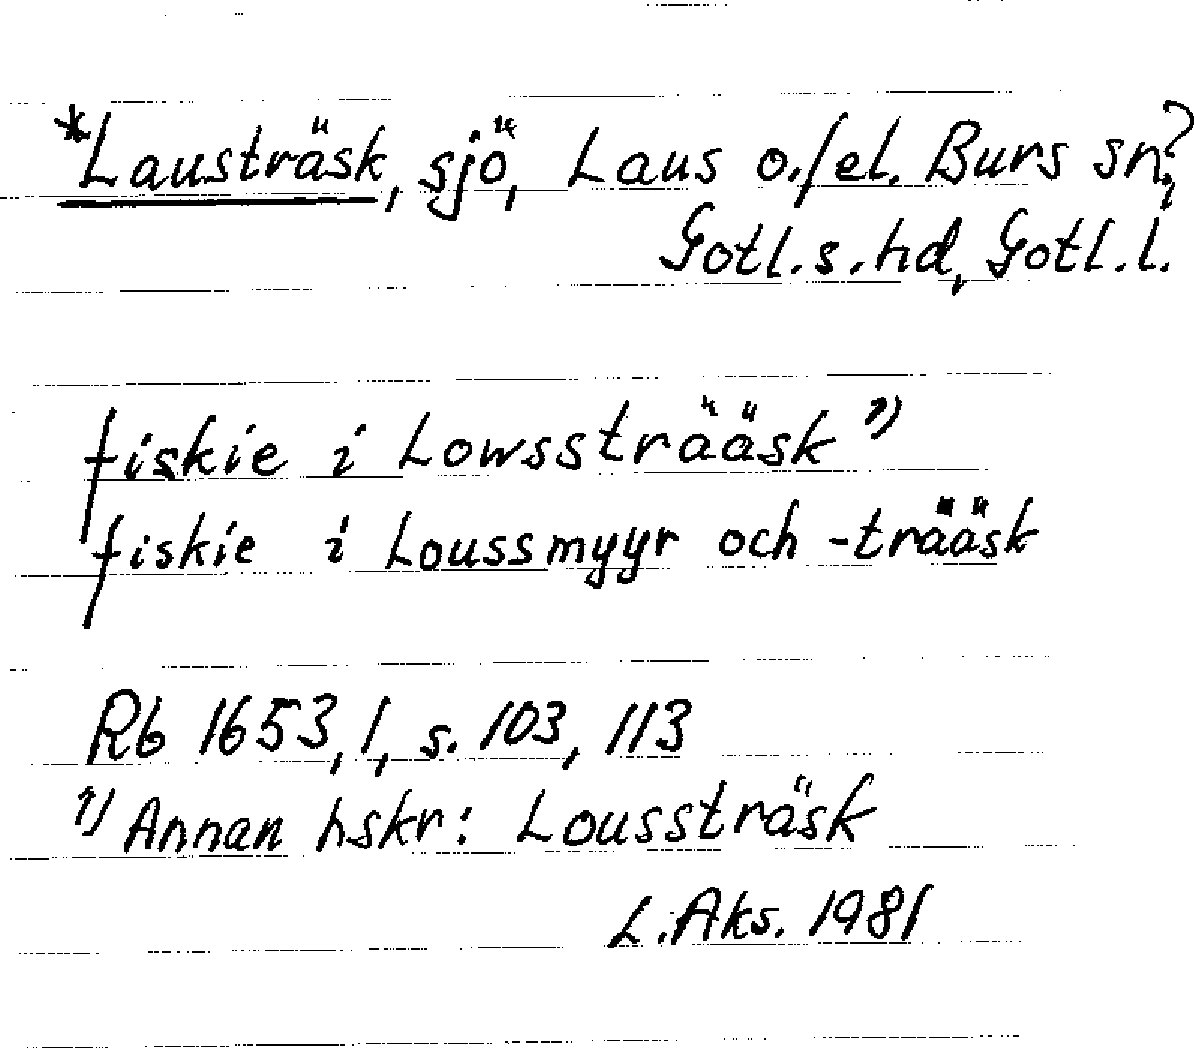 *Lausträsk, sjö, Laus o./el. Burs sn?,
Gotl.s.hd, Gotl.l.
fiskie i Lowssträäsk 1)
fiskie i Loussmyyr och -trääsk
Rb 1653,1, s. 103, 113
1) Annan hskr: Loussträsk
L.Aks. 1981